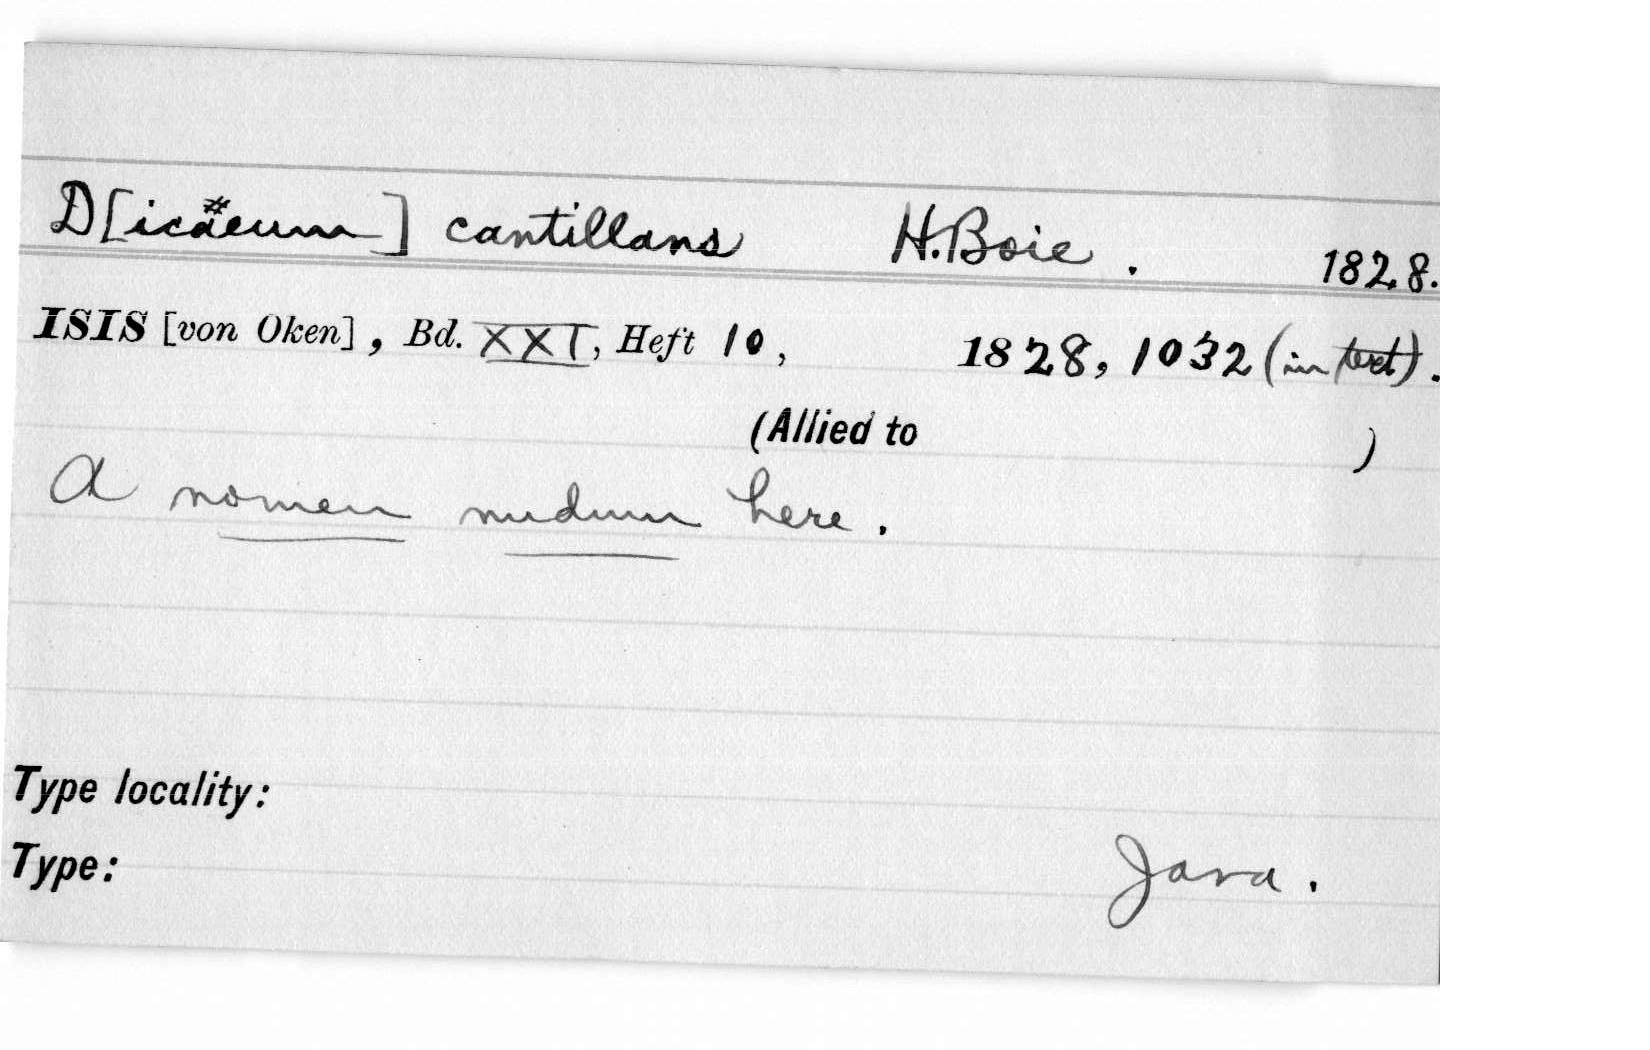 D[icaeum] cantillans H. Boie. 1828.
ISIS [von Oken], Bd. XXI, Heft 10, 1828, 1032 (in text).
(Allied to )
A nomen nudum here.
Type locality:
Type: Java.